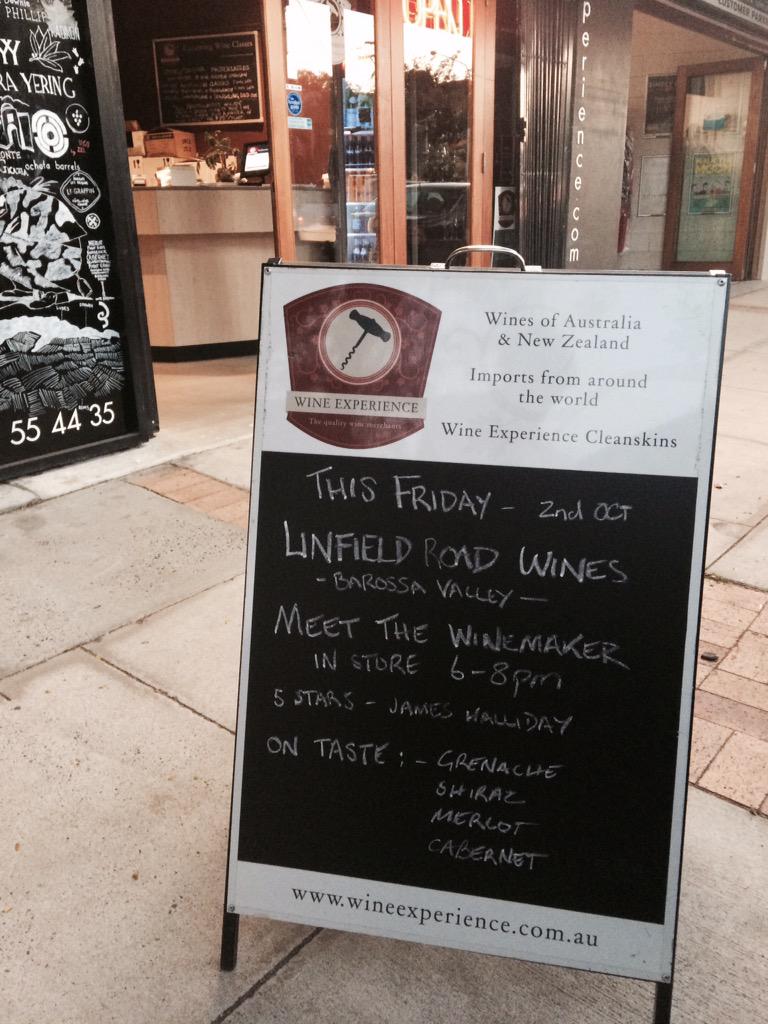 PHILLIP
RA YERING
ochota barrels
LE GRAPPIN
55 44 35
Wine Classes
OPEN
perience.com
CUSTOMER PARK
WINE EXPERIENCE
The quality wine merchants
Wines of Australia
& New Zealand
Imports from around
the world
Wine Experience Cleanskins
THIS FRIDAY - 2nd OCT
LINFIELD ROAD WINES
- BAROSSA VALLEY -
MEET THE WINEMAKER
IN STORE 6-8pm
5 STARS - JAMES HALLIDAY
ON TASTE : - GRENACHE
SHIRAZ
MERLOT
CABERNET
www.wineexperience.com.au